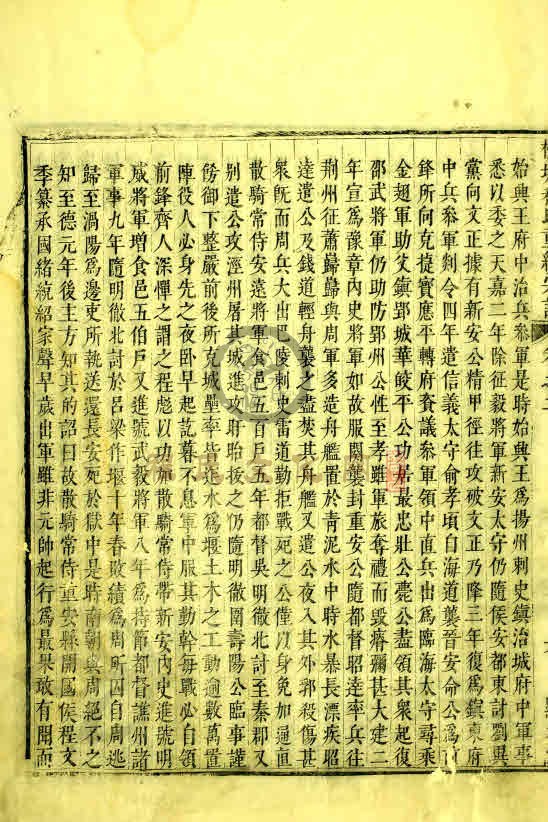 始興王府中治兵叅軍是時始興王爲揚州刺史鎭治城府中軍事
悉以委之天嘉二年除征毅將軍新安太守仍隨侯安都東討劉異
黨向文正據有新安公精甲徑往攻破文正乃降三年復爲鎭東府
中兵叅軍剡令四年遣信義太守俞孝頃自海道襲晉安命公爲前
鋒所向克捷實應平轉府諮議叅軍領中直兵出爲臨海太守尋乘
金翅軍助父鎭郢城華皎平公功居最忠壯公薨公盡領其衆起復
邵武將軍仍助防郢州公性至孝雖軍旅奪禮而毀瘠彌甚大建二
年宣爲豫章內史將軍如故服闋襲封重安公隨都督昭達率兵往
荆州征蕭巋巋與周軍多造舟艦置於青泥水中時水暴長漂疾昭
達遣公及錢道輕舟襲之盡焚其舟艦又遣公夜入其外郛殺傷甚
衆旣而周兵大出巴陵刺史雷道勤拒戰死之公僅以身免加通直
散騎常侍安遠將軍食邑五百戶五年都督吳明徹北討至秦郡又
别遣公攻涇州屠其城進攻盱眙拔之仍隨明徹圍壽陽公臨事謹
飭御下整嚴前後所克城壘率皆迮水爲堰土木之工動逾數萬置
陣役人必身先之夜卧早起迄暮不息軍中服其勤幹每戰必自領
前鋒齊人深憚之謂之程彪以功加散騎常侍帶新安內史進號明
威將軍增食邑五伯戶又進號武毅將軍八年爲持節都督譙州諸
軍事九年隨明徹北討於呂梁作堰十年春敗績爲周所囚自周逃
歸至渦陽爲邊吏所執送還長安死於獄中是時南朝與周絕不之
知至德元年後主方知其的詔曰故散騎常侍重安縣開國侯程文
季纂承國緒統紹家聲早歲出軍雖非元帥起行爲最果敢有聞而